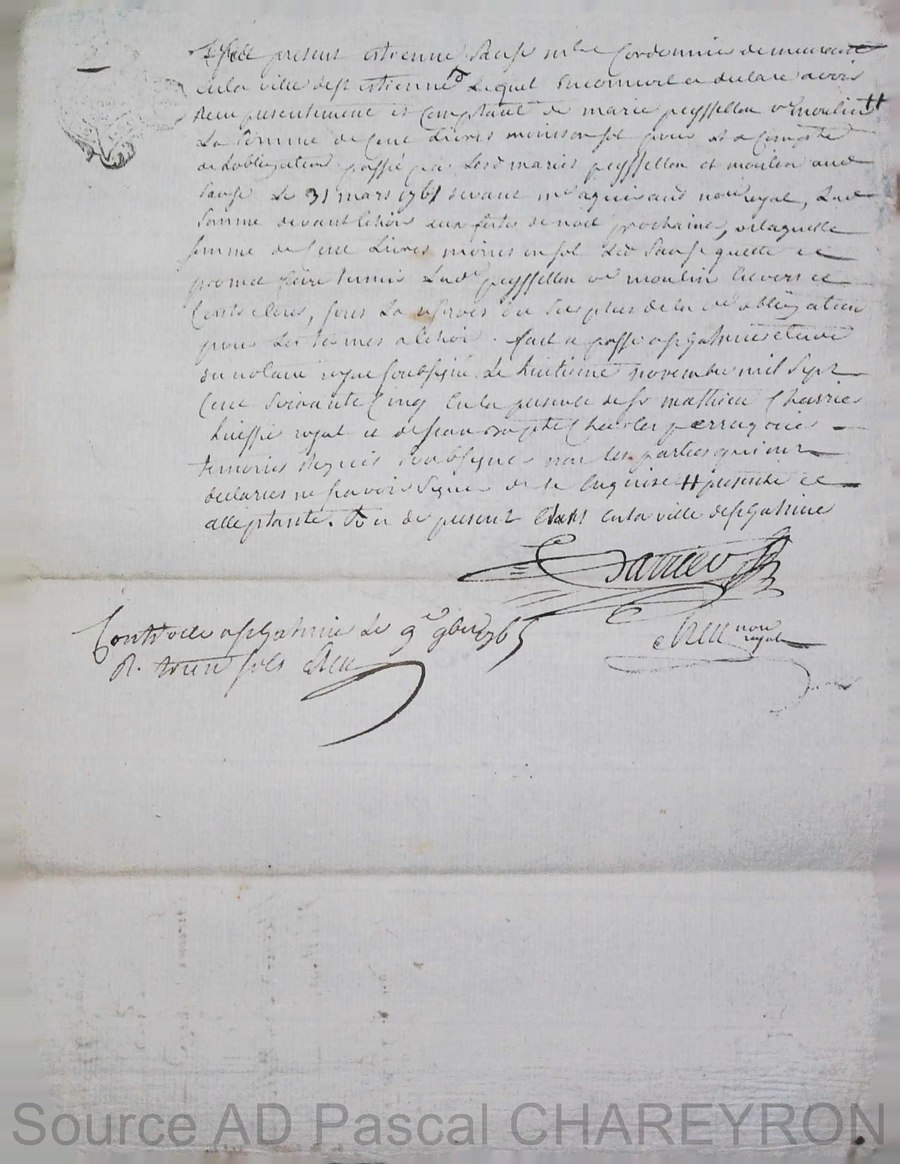 present estienne Sause mtre Cordonnie demeurant
en la ville de st estienne Lequel en a declare avoir
Receu presentement et Comptant de marie peyssellon ve moulin #
La somme de Cent Livres moins un sol pour et a Compte
de Lobligation passé par Lesd maries peyssellon et moulin aud
Sause Le 31 mars 1761 devant me nore royal, Lad
somme devant Echoir aux fêtes de noel prochaine, de laquelle
somme de Cent Livres moins un sol Led Sause quitte et
promet faire tenir Lad peyssellon ve moulin Envers et
Contre tous, sous La reserve du Surplus de la de obligation
pour Les termes a Echoir. fait et passé a st Galmier etude
du notaire royal soussigné Le huitieme novembre mil Sept
Cent Soixante Cinq En la presence de sr mathieu
huissier royal et de jean bapte perruquier
temoins Requis soussignes non les parties qui ont
declarées ne scavoir Signer de ce Enquises # presente et
acceptante. de present Etant en la ville de st Galmier

nore
royal
Controllé a st Galmier Le 9e 9bre 1765
R. treize sols
Source AD Pascal CHAREYRON